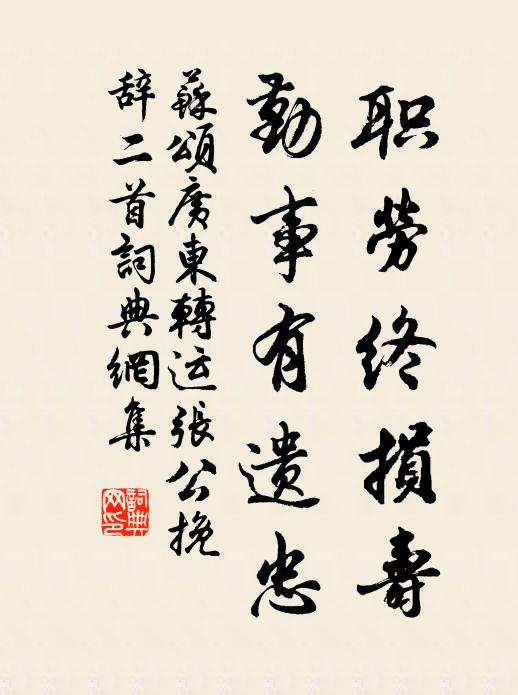 职劳终損壽
勤事有遗忠
蘇頌廣東轉运張公挽
辞二首詞典網集
詞典网印